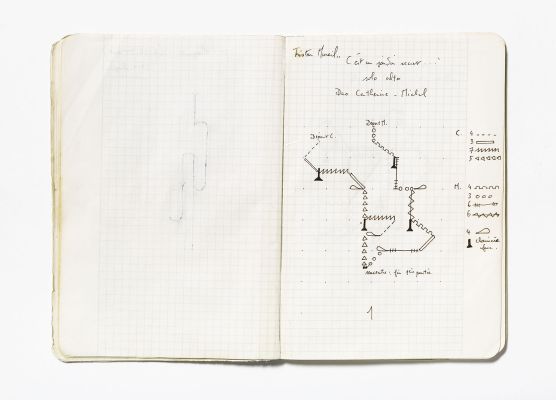 Tristan Murail..
C'est un jardin secret ...
solo alto
Duo Catherine - Michel
Départ M.
Départ C.
C. 4
3
7
5
M. 4
3
6
6
4
rencontre : fin 1ère partie
1